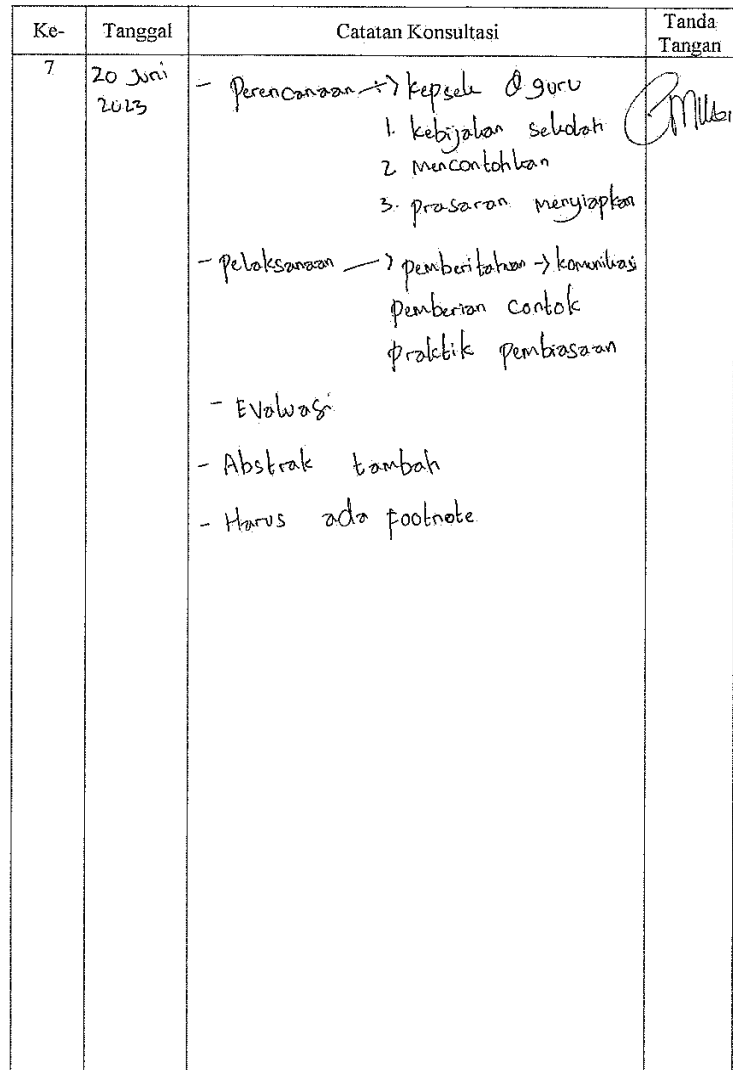 Ke- Tanggal Catatan Konsultasi Tanda Tangan
7 20 Juni 2023
- Perencanaan -> kepsek & guru
1. kebijakan sekolah
2 Mencontohkan
3. prasaran menyiapkan
- pelaksanaan -> pemberitahuan -> komunikasi
pemberian contok
praktik pembiasaan
- Evaluasi
- Abstrak tambah
- Harus ada footnote